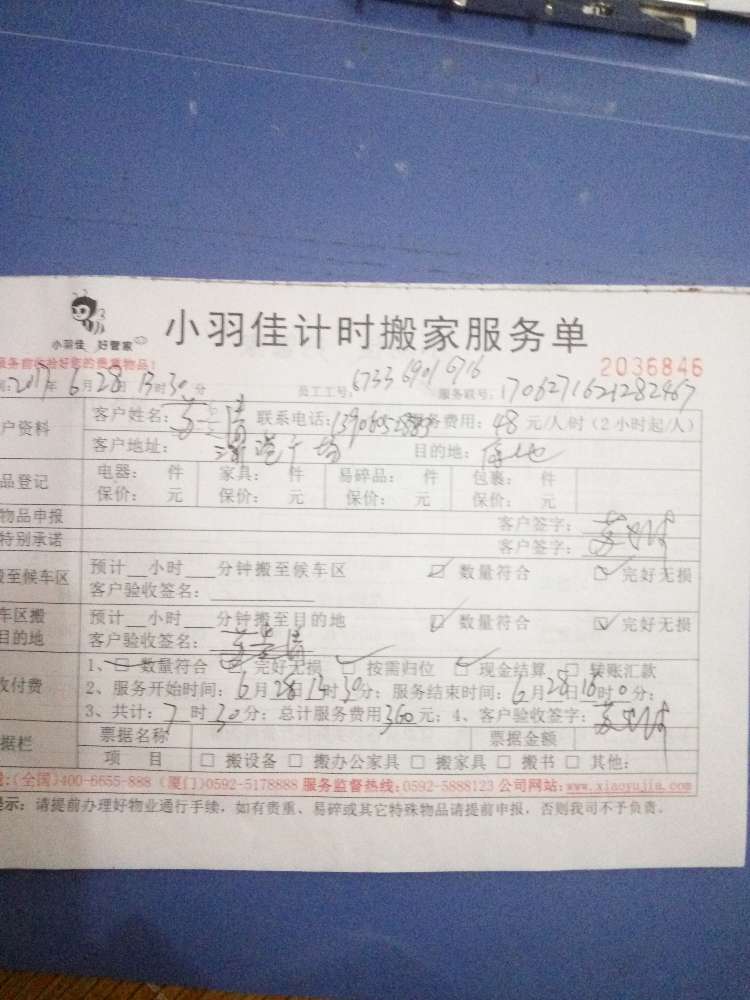 小羽佳 好管家
小羽佳计时搬家服务单
服务前收拾好您的贵重物品!
2036846
2017年6月28日13时30分 员工工号:6733 6901 6716 服务联号:1706271621282467
户资料 客户姓名: 联系电话: 服务费用:48元/人/时(2小时起/人)
客户地址: 目的地:
品登记 电器: 件 家具: 件 易碎品: 件 包裹: 件
保价: 元 保价: 元 保价: 元 保价: 元
物品申报 客户签字:
特别承诺 客户签字:
搬至候车区 预计__小时___分钟搬至候车区 ☑ 数量符合 ☑ 完好无损
客户验收签名:
车区搬 预计__小时___分钟搬至目的地 ☑ 数量符合 ☑ 完好无损
目的地 客户验收签名:
1、☐ 数量符合 ☑ 完好无损 ☑ 按需归位 ☑ 现金结算 ☐ 转账汇款
收付费 2、服务开始时间:6月28日13时30分;服务结束时间:6月28日16时0分;
3、共计:7时30分;总计服务费用360元;4、客户验收签字:
据栏 票据名称 票据金额
项 目 ☐ 搬设备 ☐ 搬办公家具 ☐ 搬家具 ☐ 搬书 ☐ 其他:
(全国)400-6655-888 (厦门)0592-5178888 服务监督热线:0592-5888123 公司网站:www.xiaoyujia.com
提示:请提前办理好物业通行手续,如有贵重、易碎或其它特殊物品请提前申报,否则我司不予负责。